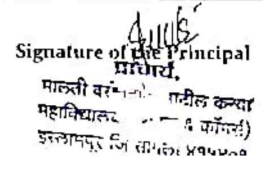 Signature of the Principal
प्राचार्य,
मालती पाटील कन्या
महाविद्यालय कॉमर्स)
इस्लामपूर जि सांगली ४१५४०९